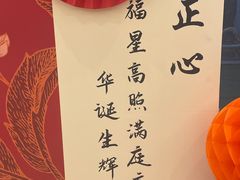 正心
福星高照满庭
华诞生辉